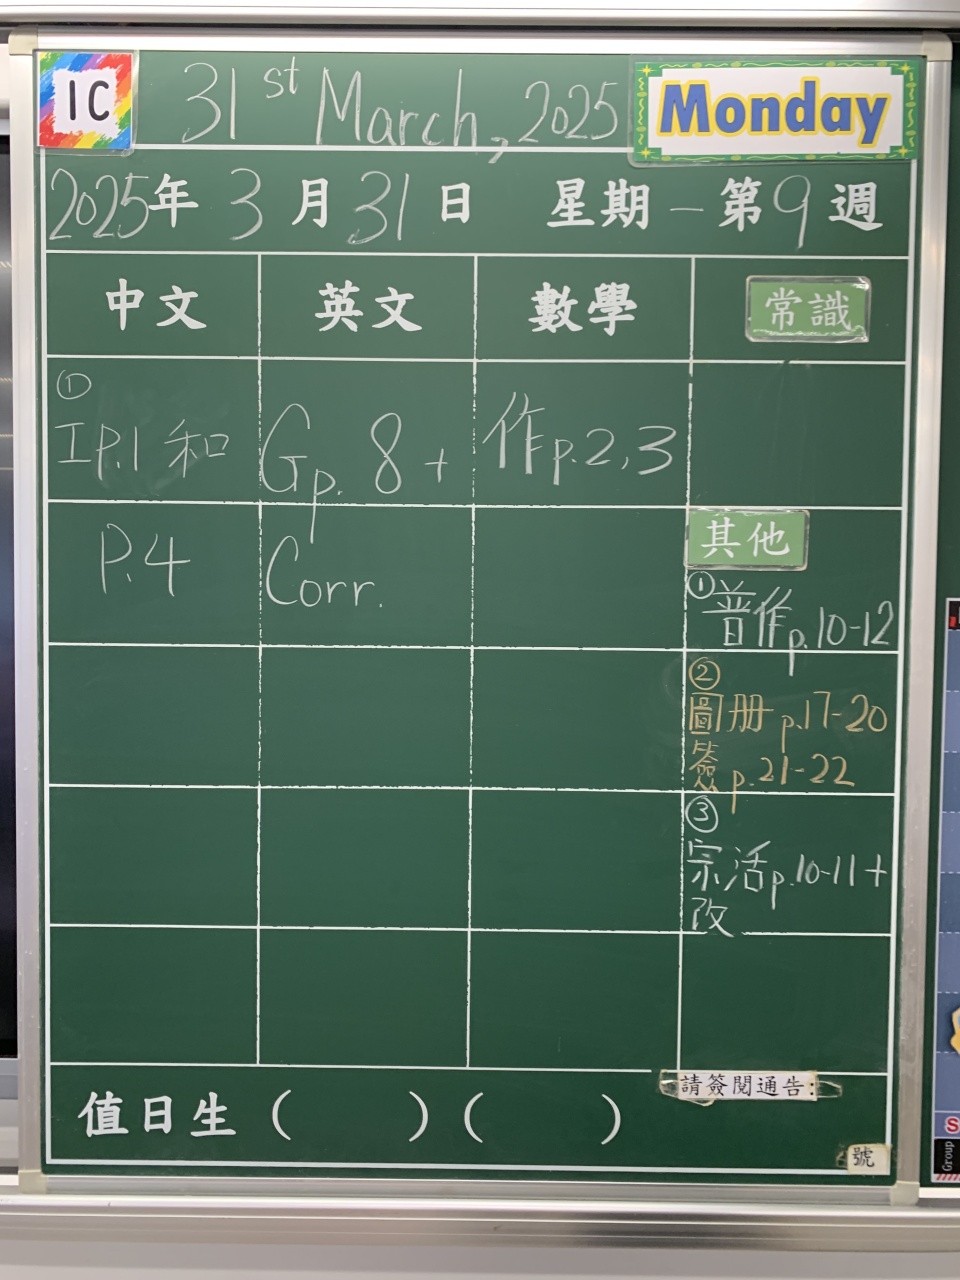 1C
31st March, 2025
Monday
2025年 3 月 31 日 星期一 第 9 週
中文 英文 數學 常識
①
工P.1 和
Gp. 8 +
作p.2,3
P.4
Corr.
其他
①普作p.10-12
②
圖冊p.17-20
簽p.21-22
③
宗活p.10-11+
改
值日生 ( ) ( )
請簽閱通告:
號
Group
S